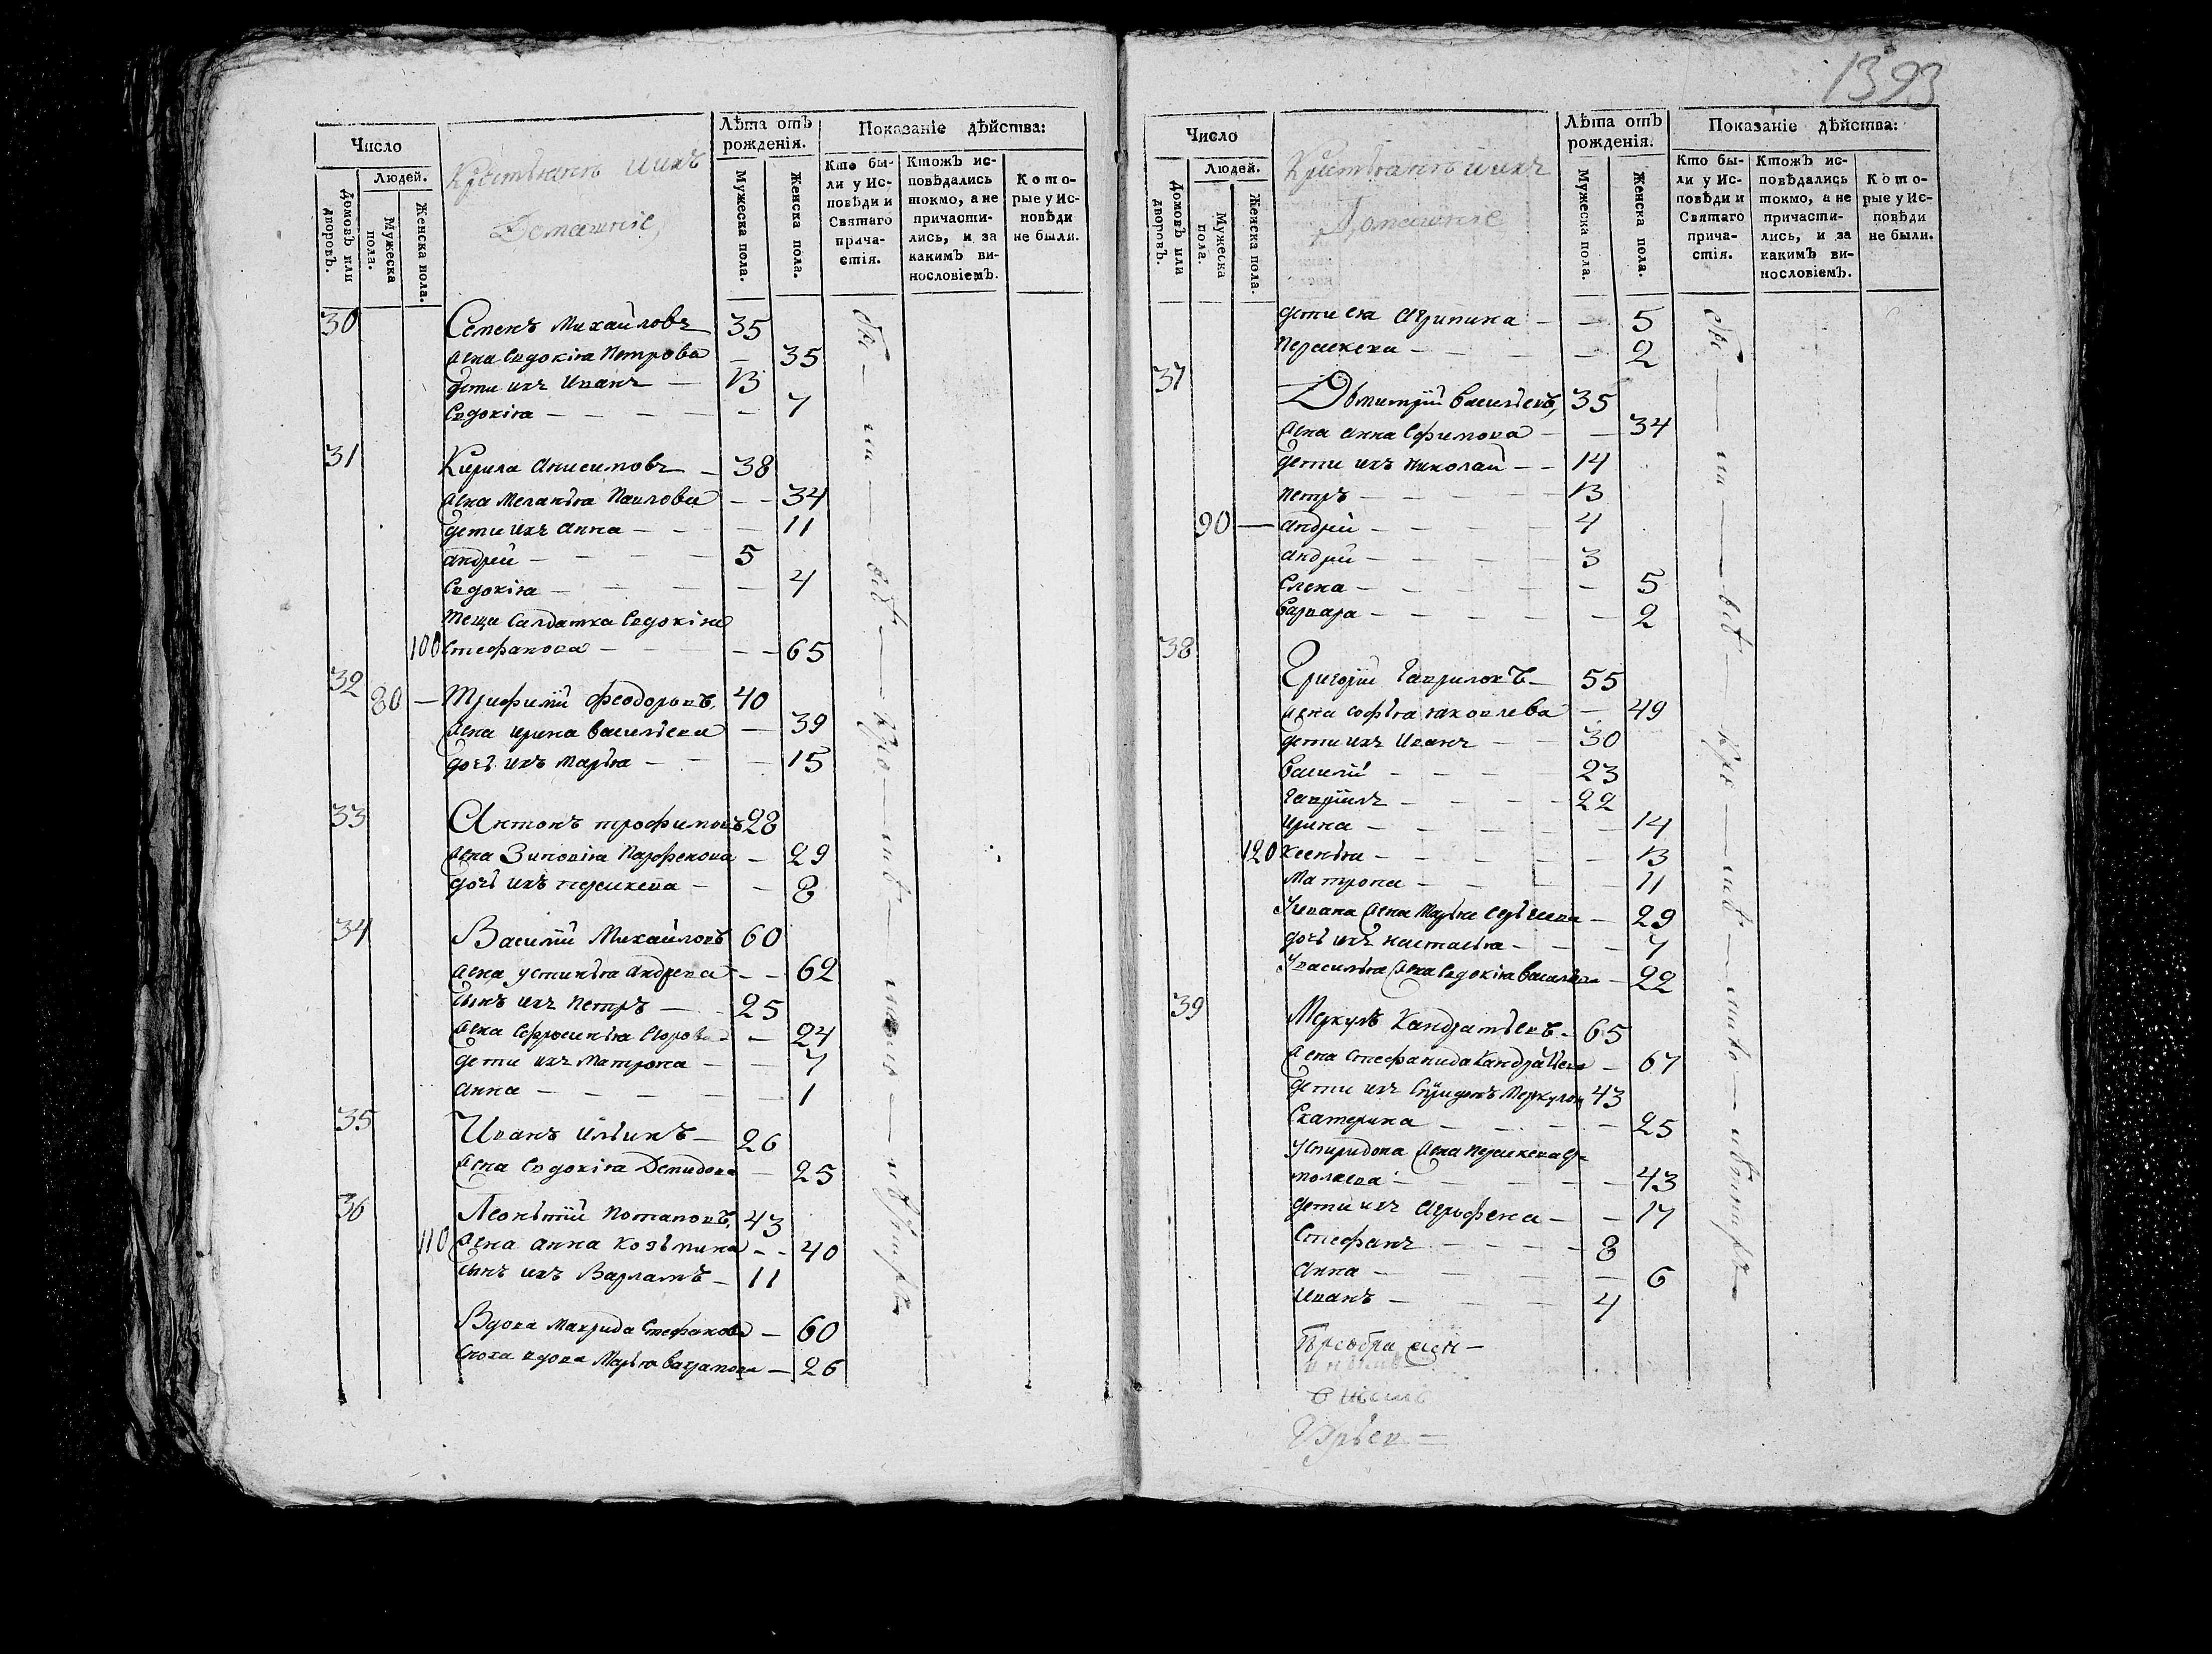 Число
Людей.
Домовъ или дворовъ.
Мужеска пола.
Женска пола.
Крестьянъ и ихъ
Домашніе,
Лѣта отъ рожденія.
Мужеска пола.
Женска пола.
Показаніе дѣйства:
Кто были у Исповѣди и Святаго причастія.
Ктожъ исповѣдались токмо, а не причастились, и за какимъ винословіемъ.
Которые у Исповѣди не были.
30 Семенъ Михайловъ 35
жена Евдокія Петрова — 35
дети ихъ Иванъ — 13
Евдокія — — — — 7
31 Кирила Анисимовъ — 38
жена Меланья Павлова — — 34
дети ихъ Анна — — — 11
андрей — — — — 5
Евдокія — — — — 4
теща Салдатка Евдокія
100 Стефанова — — — — 65
32 80 — Трифилій Феодоровъ, 40
жена ирина васильева — 39
дочь ихъ Марья — — — 15
33 Антонъ трофимовъ 28
жена Зиновія Парфенова — 29
дочь ихъ прасковья — — 8
34 Василій Михайловъ 60
жена устинья андреева — — 62
сынъ ихъ Петръ — — 25
жена Ефросинья Егорова — 24
дети ихъ Матрона — — 7
анна — — — — — 1
35 Иванъ ильинъ — 26
жена Евдокія Демидова — 25
36 Леонтій Потаповъ, 43
110 жена анна козьмина — — 40
сынъ ихъ Варламъ — 11
Вдова Маврида Стефанова — 60
сноха вдова Марья — 26
1393
Число
Людей.
Домовъ или дворовъ.
Мужеска пола.
Женска пола.
Крестьянъ и ихъ
Домашніе
Лѣта отъ рожденія.
Мужеска пола.
Женска пола.
Показаніе дѣйства:
Кто были у Исповѣди и Святаго причастія.
Ктожъ исповѣдались токмо, а не причастились, и за какимъ винословіемъ.
Которые у Исповѣди не были.
дети ея агрипина — — 5
Праскева — — — — 2
37 Дмитрій васильевъ, 35
жена анна Ефимова — — 34
дети ихъ николай — — 14
петръ — — — — 13
90 — андрей — — — — 4
андрей — — — — 3
Елена — — — — — 5
варвара — — — — — 2
38 Григорій Гавриловъ — 55
жена софья яковлева — 49
дети ихъ Иванъ — — 30
василій — — — — 23
гавріилъ — — — — 22
ирина — — — — — 14
120 ксенья — — — — — 13
Матрона — — — — 11
У ивана жена Марья — 29
дочь ихъ настасья — — — 7
У василья жена Евдокія васильева — 22
39 Меркулъ Кандратьевъ — 65
жена Стефанида Кандратьева — 67
дети ихъ Спиридонъ Меркуловъ 43
Екатерина — — — — 25
У Спиридона жена праскева Ер
молаева — — — — — 43
дети ихъ Агрофена — — 17
Стефанъ — — — — 8
анна — — — — — 6
иванъ — — — — 4